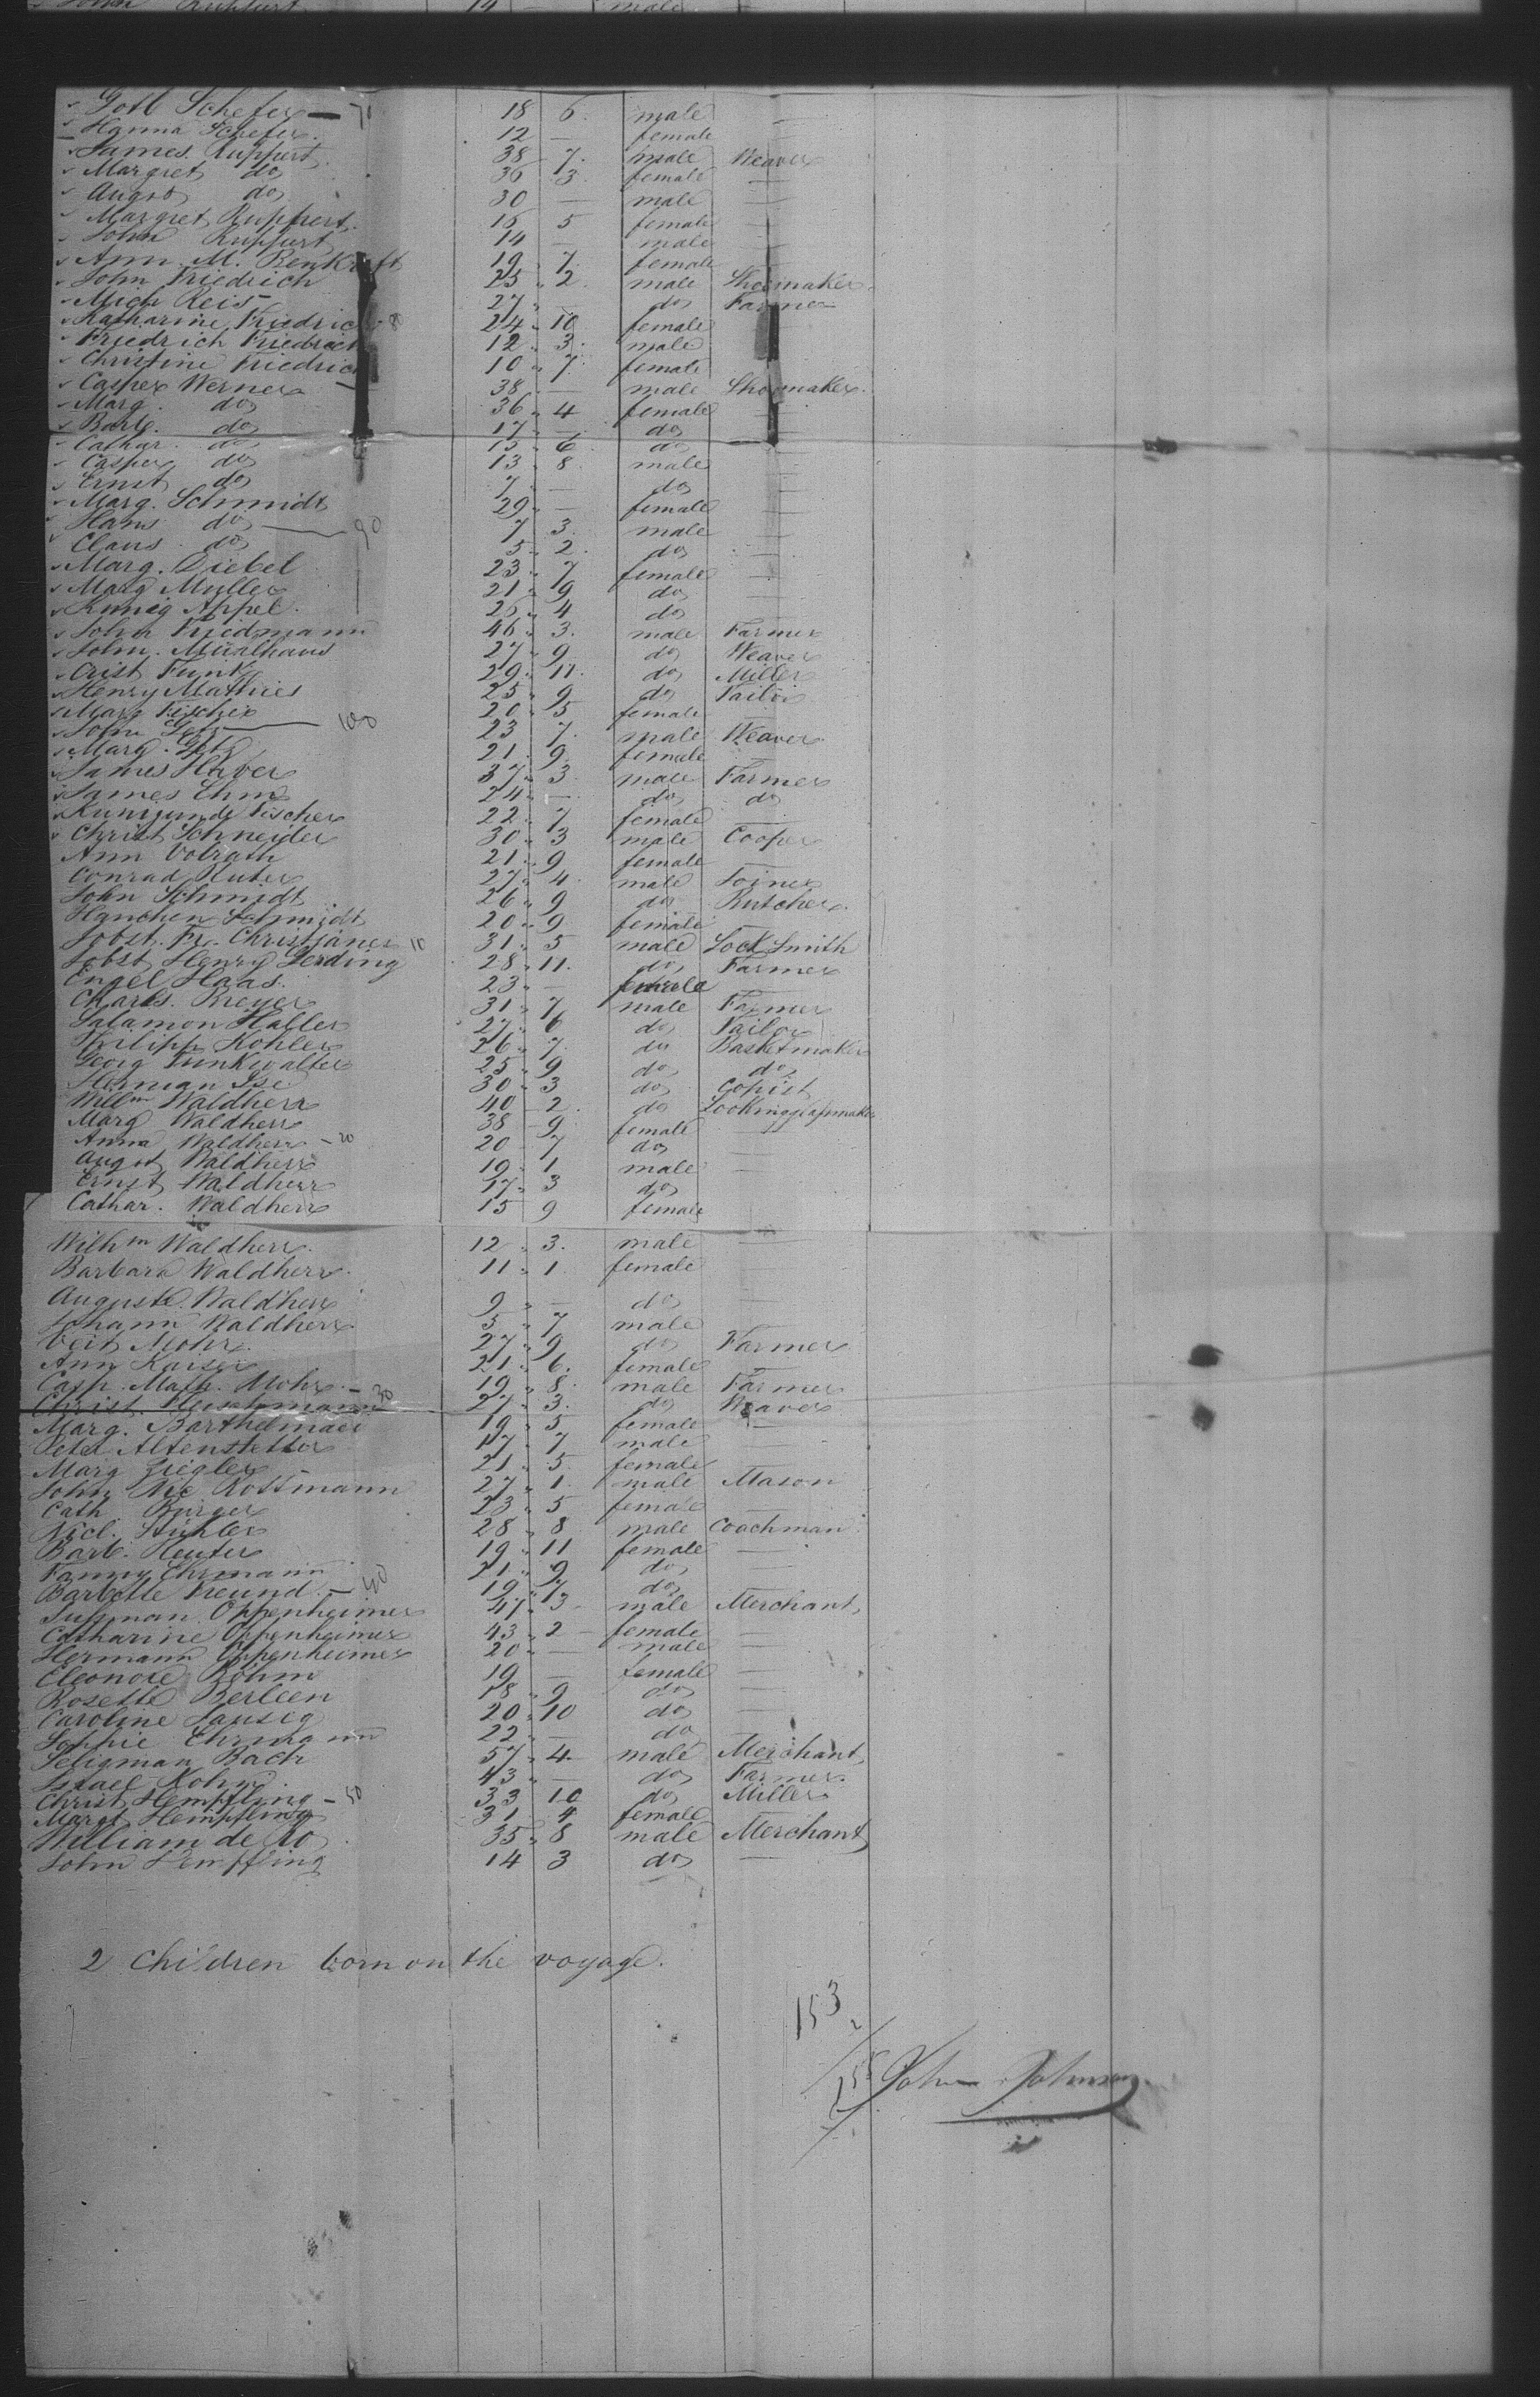 John Ruppert 14 — male
Gotl Schefer — 70 18 6. male —
Hanna Schefer. 12 — female —
James Ruppert. 38 7. male Weaver
Margret do 36 3. female —
Augst do 30 — male —
Margret Ruppert. 16 5 female —
John Ruppert 14 — male —
Ann M. 19 7. female —
John Friedrich 25 " 2. male Shoemaker.
Mich Reis 27 " — do Farmer
Katharine Friedrich 80 24 " 10 female
Friedrich Friedrich 12 " 3. male
Christine Friedrich 10 " 7. female
Casper Werner 38 — male Shoemaker.
Marg. do 36 " 4 female —
Barb. do 17 " — do —
Cathar. do 15 " 6 do —
Casper do 13 " 8. male —
Ernst do 7 " — do —
Marg. Schmidt 29 " — female —
Hans do — 90 7 3. male —
Claus do 5 " 2. do —
Marg. Diebel 23 " 7 female —
Marg Muller 21 " 9 do —
Kunig Appel. 25 " 4 do —
John Friedmann 46 " 3. male Farmer
John. 27 " 9 do Weaver
Crist Funk 29 " 11. do Miller
Henry Mathies 25 " 9 do Tailor
Marg Fischer 20 " 5 female
John — 100 23 7. male Weaver.
Marg. 21 " 9. female —
James 37 " 3. male Farmer
James Ehm 24 " — do do
Kunigunde Fischer 22 " 7 female —
Christ Schneider 30 " 3 male Cooper
Ann Volrath 21 " 9 female —
Conrad Ruter 27 " 4. male Joiner
John Schmidt 26 " 9 do Butcher.
Hanchen Schmidt 20 " 9 female —
Jobst. Fr. Christjaner 10 31 " 5 male Lock Smith
Jobst Henry Gerding 28 " 11. do Farmer
Engel Haas. 23 " — female
Charls. Breyer 31 " 7 male Farmer
Salamon Haller 27 " 6 do Tailor
Philipp Kohler 26 " 7 do Basketmaker
Georg Funkwalter 25 " 9 do do
Herman 30 " 3 do Copist
Willm Waldherr 40 — 2. do Lookinglassmaker
Marg Waldherr 38 9. female —
Anna Waldherr — 20 20 7 do —
Augst Waldherr 19 " 1 male —
Ernst Waldherr 17 " 3 do
Cathar. Waldherr 15 9 female
Wilhm Waldherr. 12 " 3. male —
Barbara Waldherr. 11 " 1 female —
Auguste. Waldherr 9 " — do —
Johann Waldherr 5 " 7 male —
Veit Mohr. 27 " 9 do Farmer
Ann Kaiser 21 " 6. female —
Casp. Math. Mohr. — 30 19 " 8. male Farmer
Christ. Fleischmann 27 " 3. do Weaver
Marg. Barthelmaei 19 " 5 female —
Peter Altenstetter 17 " 7 male
Marg Ziegler 21 " 5. female —
John Nic Rottmann 27 " 1. male Mason
Cath. Burger 23 " 5 female —
Nicl. Stuhler 28 " 8. male Coachman.
Barb. Reuter 19 " 11 female —
Fanny Ehrmann 21 " 9 do —
Barbette Freund. — 40 19 " 7 do —
Sussman Oppenheimer 47 " 3 — male Merchant,
Catharine Oppenheimer 43 " 2 — female —
Hermann Oppenheimer 20 " — male —
Eleonore Böhm 19 — female —
Rosette Berleen 18 " 9 do —
Caroline Lausig 20 " 10 do —
Soppie Ehrmann 22 " — do —
Seligman Bach 57 " 4 — male Merchant,
Israel Kohn. 43 " — do Farmer.
Christ Hempfling — 50 33 10 do Miller
Margt Hempfling 31 " 4 female
William de Ro 35 " 8 male Merchant
John Hempfling 14 3 do —
2 Children born on the voyage.
153
2
155 John Johnson